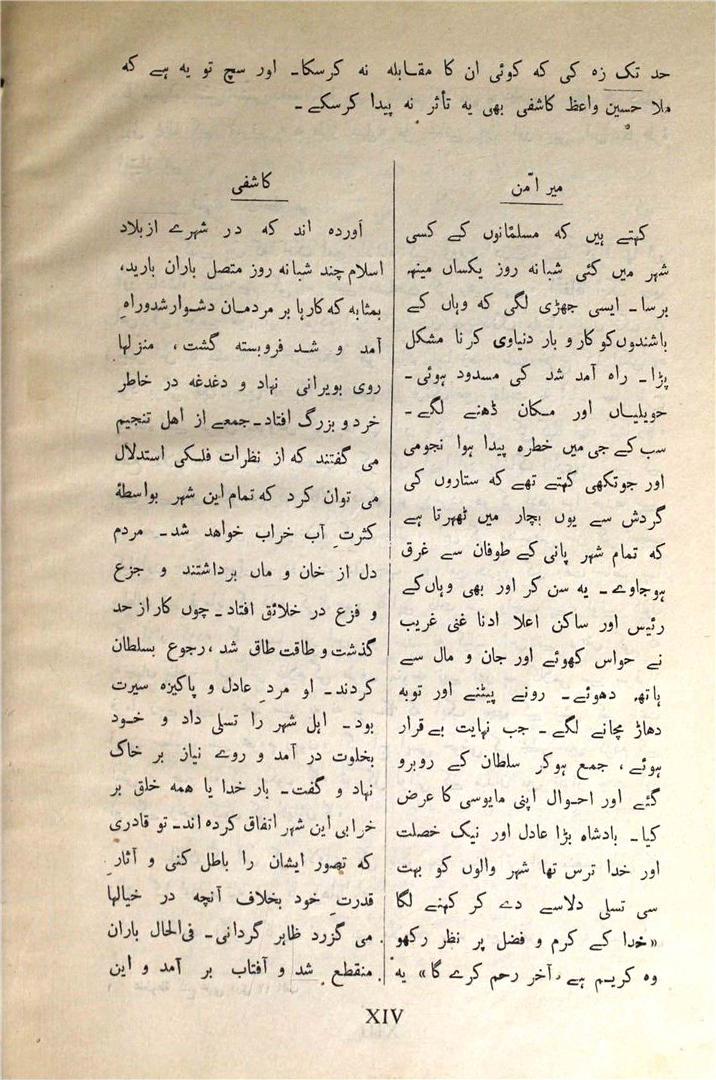 حد تک زہ کی کہ کوئی ان کا مقابلہ نہ کرسکا۔ اور سچ تو یہ ہے کہ
ملا حسین واعظ کاشفی بھی یہ تأثر نہ پیدا کرسکے۔
میر امّن
کہتے ہیں کہ مسلمانوں کے کسی
شہر میں کئی شبانہ روز یکساں مینھ
برسا۔ ایسی جھڑی لگی کہ وہاں کے
باشندوں کو کار و بار دنیاوی کرنا مشکل
پڑا۔ راہ آمد شد کی مسدود ہوئی۔
حویلیاں اور مکان ڈھنے لگے۔
سب کے جی میں خطرہ پیدا ہوا نجومی
اور جوتکھی کہتے تھے کہ ستاروں کی
گردش سے یوں بچار میں ٹھہرتا ہے
کہ تمام شہر پانی کے طوفان سے غرق
ہوجاوے۔ یہ سن کر اور بھی وہاں کے
رئیس اور ساکن اعلا ادنا غنی غریب
نے حواس کھوئے اور جان و مال سے
ہاتھ دھوئے۔ رونے پیٹنے اور توبہ
دھاڑ مچانے لگے۔ جب نہایت بے قرار
ہوئے، جمع ہوکر سلطان کے روبرو
گئے اور احوال اپنی مایوسی کا عرض
کیا۔ بادشاہ بڑا عادل اور نیک خصلت
اور خدا ترس تھا شہر والوں کو بہت
سی تسلی دلاسے دے کر کہنے لگا
«خدا کے کرم و فضل پر نظر رکھو
وہ کریم ہے، آخر رحم کرے گا» یہ
کاشفی
آوردہ اند کہ در شہرے از بلاد
اسلام چند شبانہ روز متصل باران بارید،
بمثابہ کہ کارہا بر مردمان دشوار شدوراہِ
آمد و شد فروبستہ گشت، منزلہا
روی بویرانی نہاد و دغدغہ در خاطر
خرد و بزرگ افتاد۔ جمعے از اھل تنجیم
می گفتند کہ از نظرات فلکی استدلال
می توان کرد کہ تمام این شہر بواسطۂ
کثرتِ آب خراب خواھد شد۔ مردم
دل از خان و ماں برداشتند و جزع
و فزع در خلائق افتاد۔ چوں کار از حد
گذشت و طاقت طاق شد، رجوع بسلطان
کردند۔ او مردِ عادل و پاکیزہ سیرت
بود۔ اہل شہر را تسلی داد و خود
بخلوت در آمد و روے نیاز بر خاک
نہاد و گفت۔ بار خدا یا ھمہ خلق بر
خرابی این شہر اتفاق کردہ اند۔ تو قادری
کہ تصور ایشان را باطل کنی و آثارِ
قدرتِ خود بخلاف آنچہ در خیالہا
می گزرد ظاہر گردانی۔ فی‌الحال باران
منقطع شد و آفتاب بر آمد و این
XIV